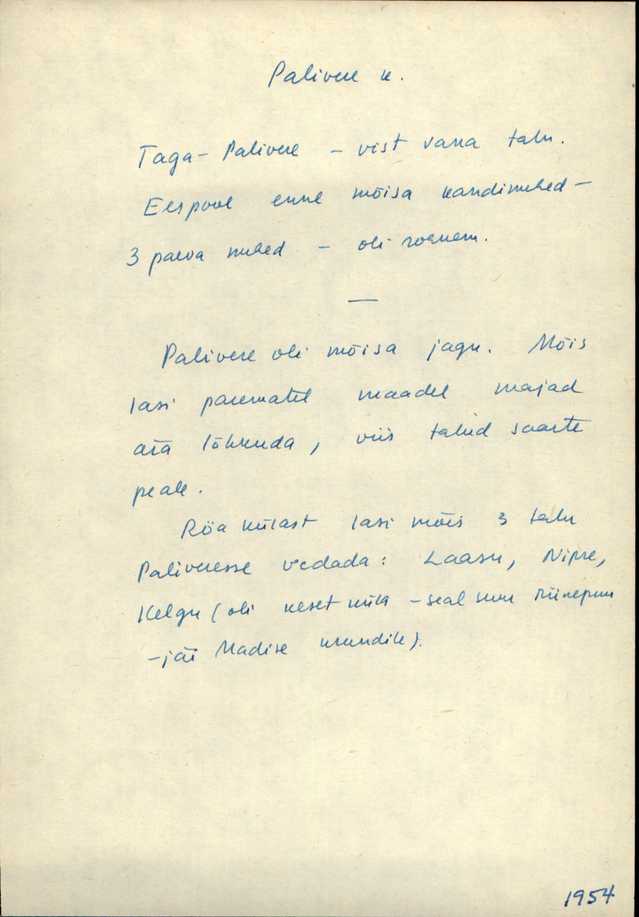 Palivere k.
Taga-Palivere - vist vana talu.
Eespool enne mõisa kandimehed -
3 päeva mehed - oli rohkem.
—
Palivere oli mõisa jagu. Mõis
lasi parematel maadel majad
ära lõhkuda, viis talud saarte
peale.
Röa külast lasi mõis 3 talu
Paliveresse vedada: Laasu, Nipre,
Kelgu (oli keset küla - seal suur
-jäi Madise krundile).
1954